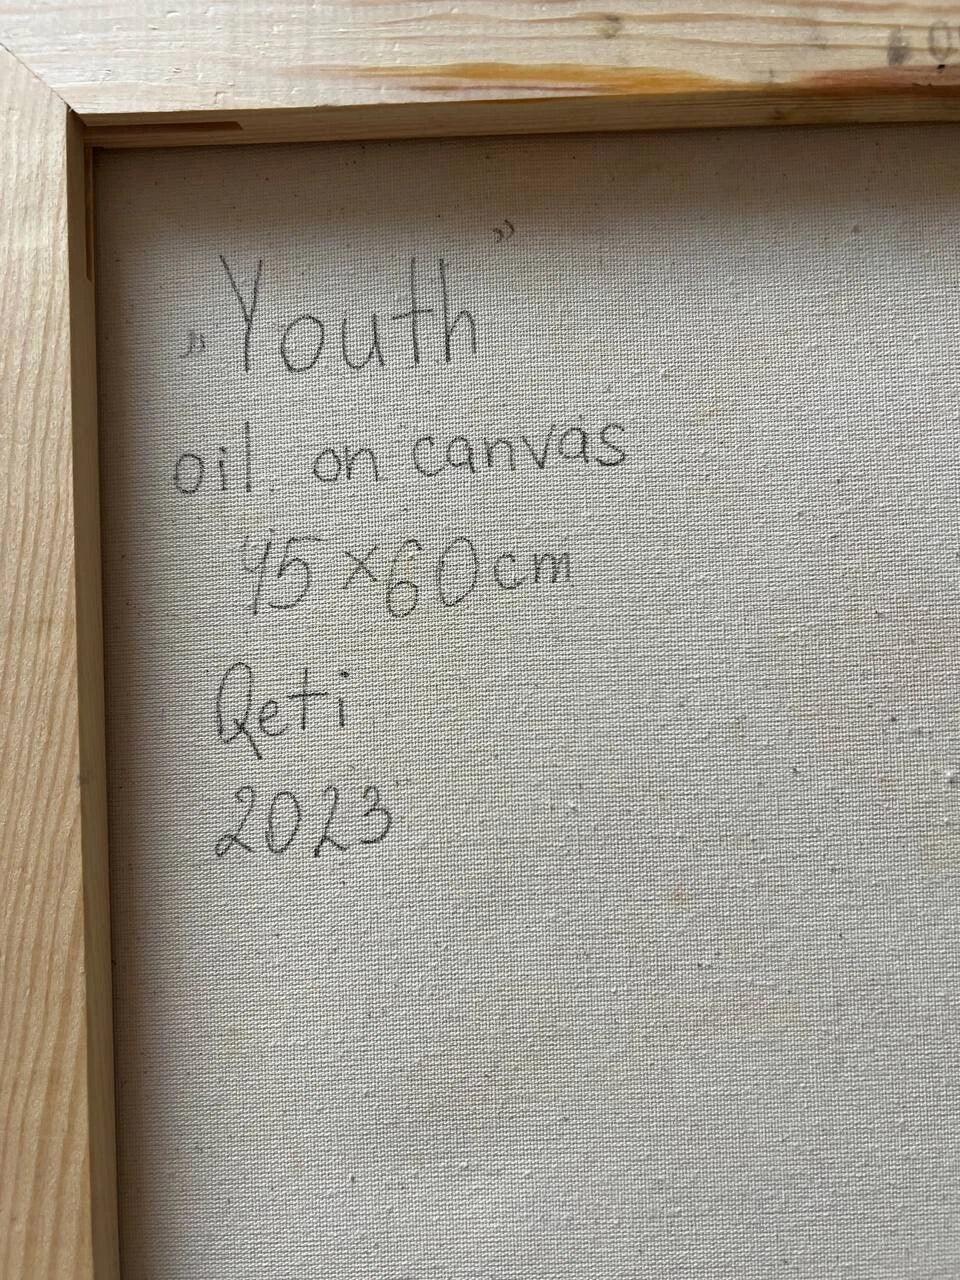 „Youth”
oil on canvas
45×60cm
Qeti
2023